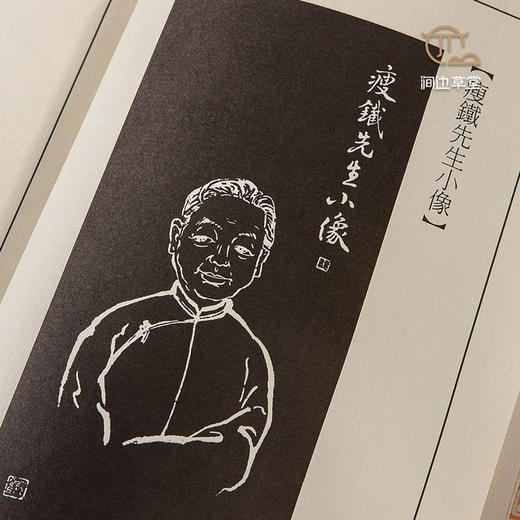 瘦鐵先生小像
【瘦鐵先生小像】
涧边草堂